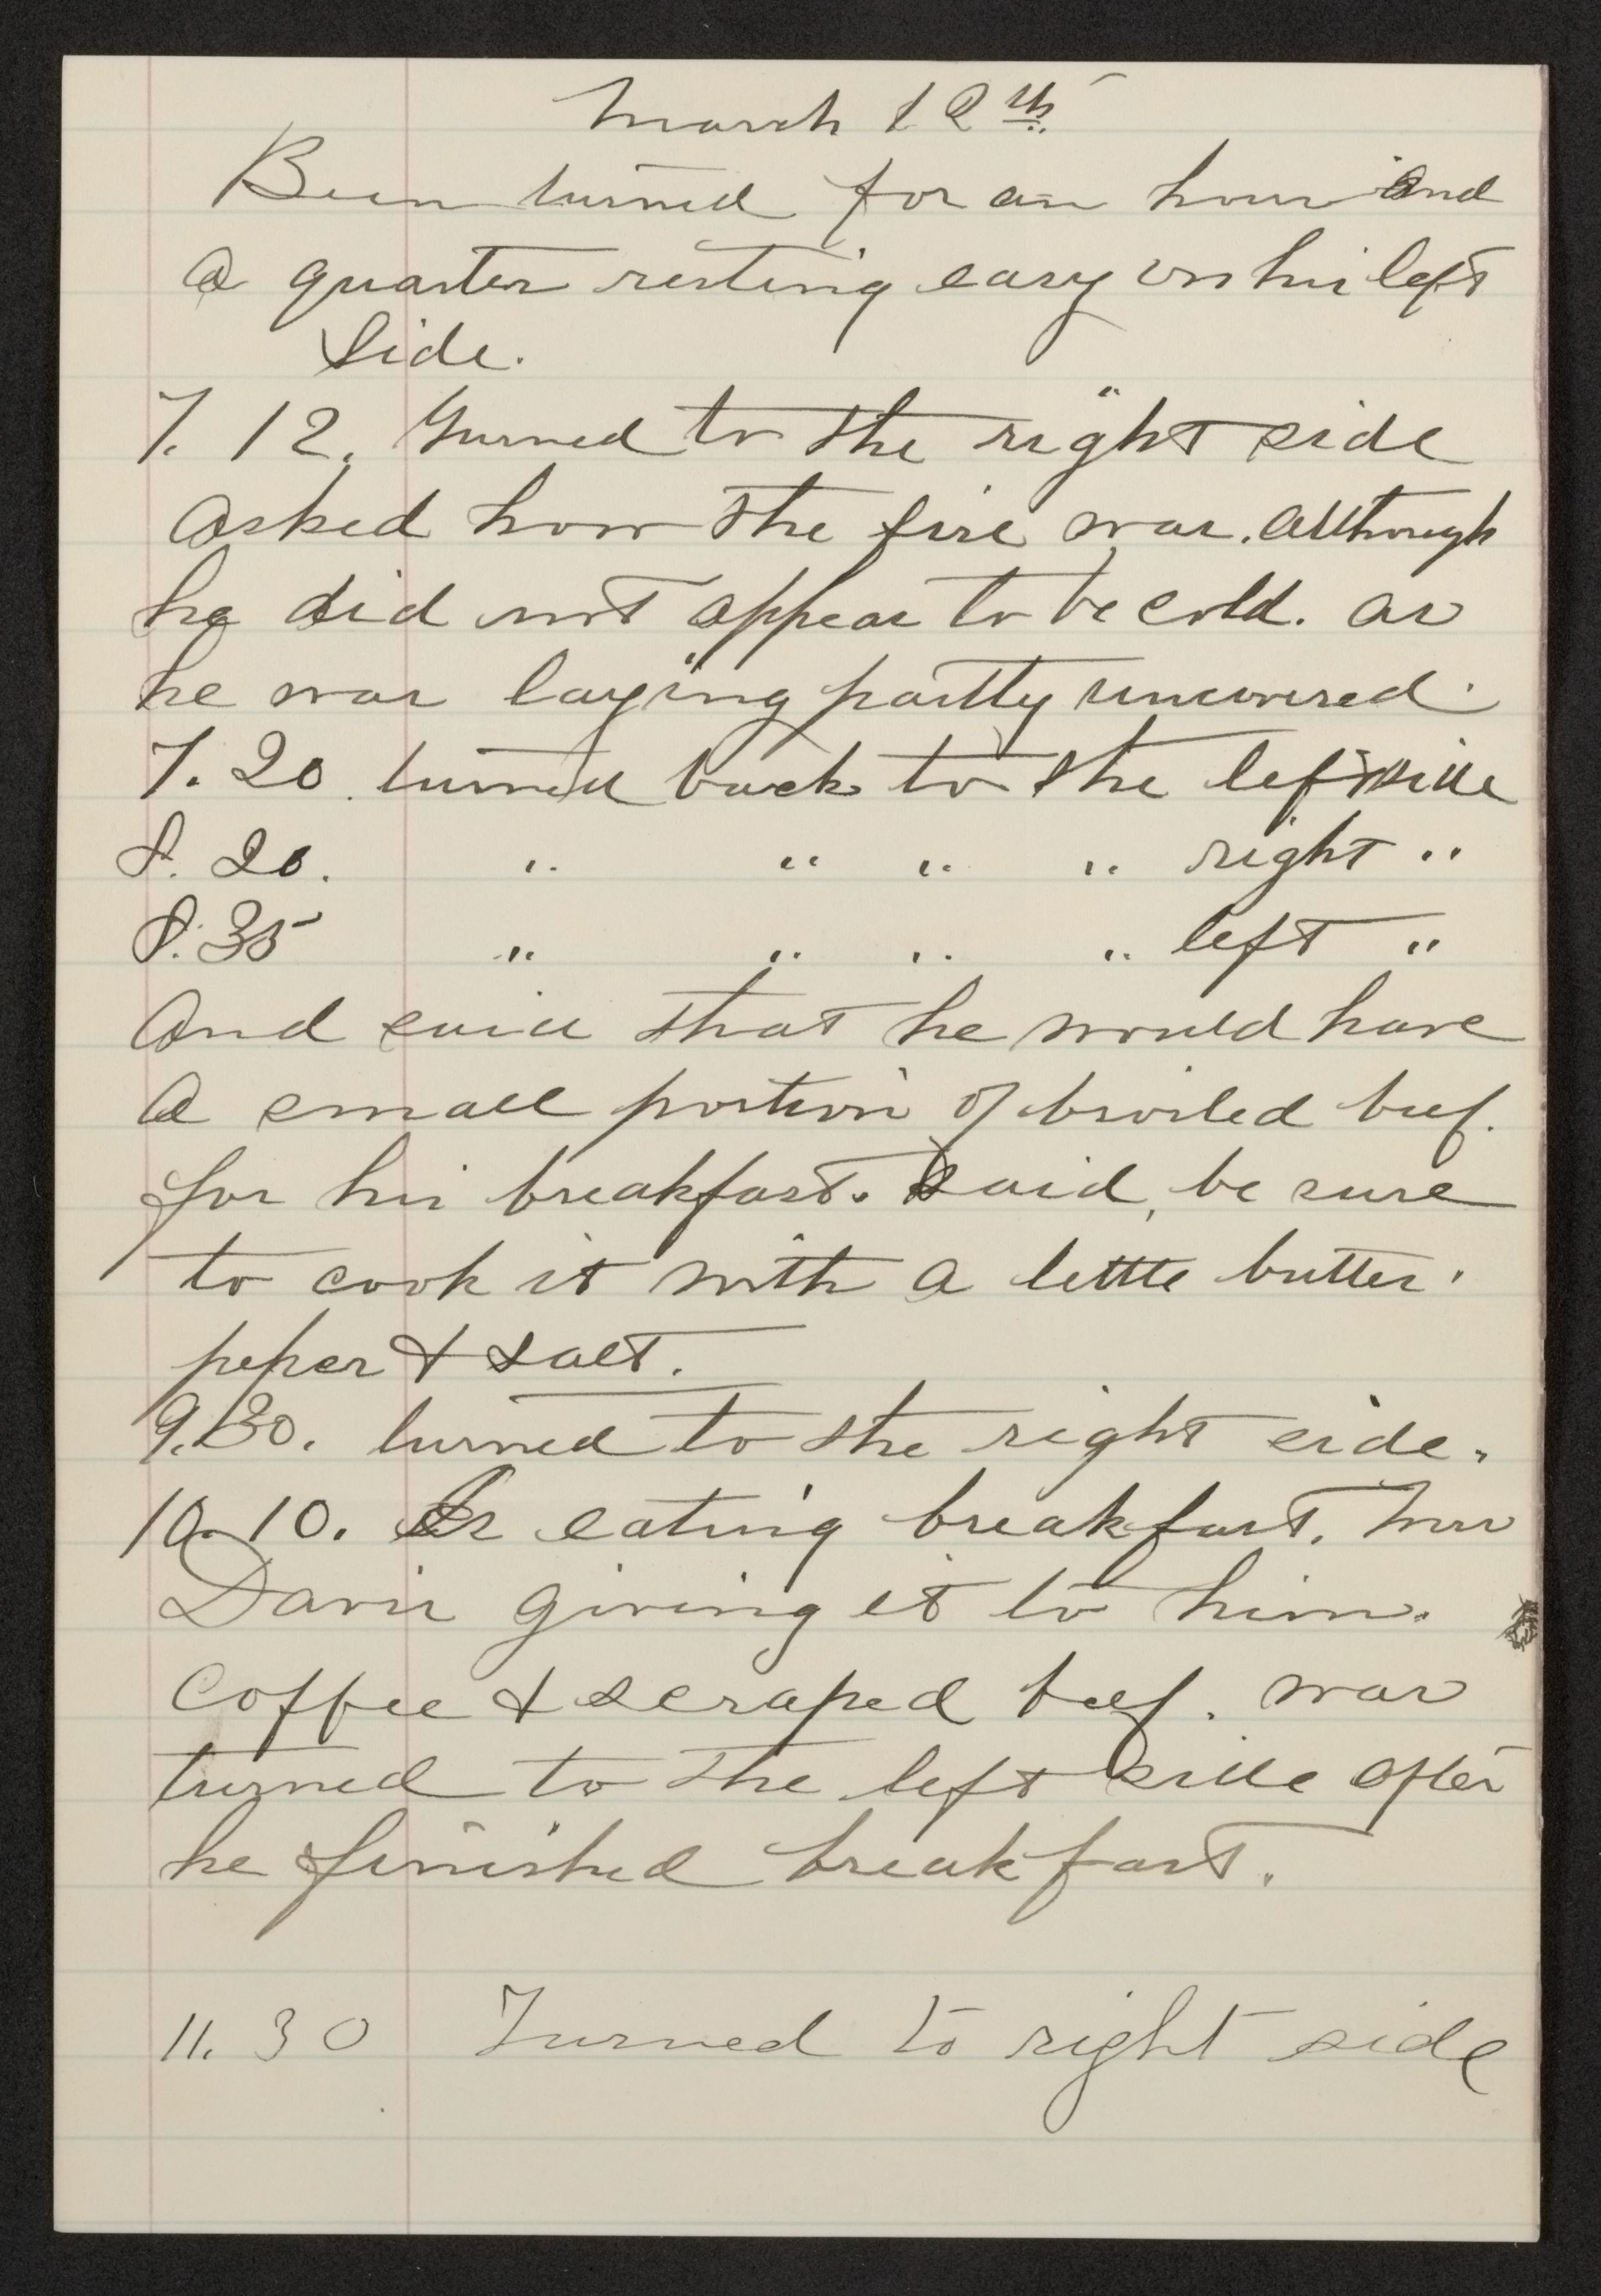 March 12th
Been turned for an hour and
a quarter resting easy on his left
side.
7. 12. Turned to the right side
asked how the fire was. allthough
he did not appear to be cold. as
he was laying partly uncovered.
7. 20. turned back to the left side
8. 20. " " " " right "
8. 35 " " " " left "
And said that he would have
a small portion of broiled beef.
for his breakfast. Said, be sure
to cook it with a little butter.
peper & salt.
9. 30. turned to the right side.
10. 10. Is eating breakfast. Mrs
Davis giving it to him.
Coffee & scraped beef. was
turned to the left side after
he finished breakfast.
11. 30 Turned to right side